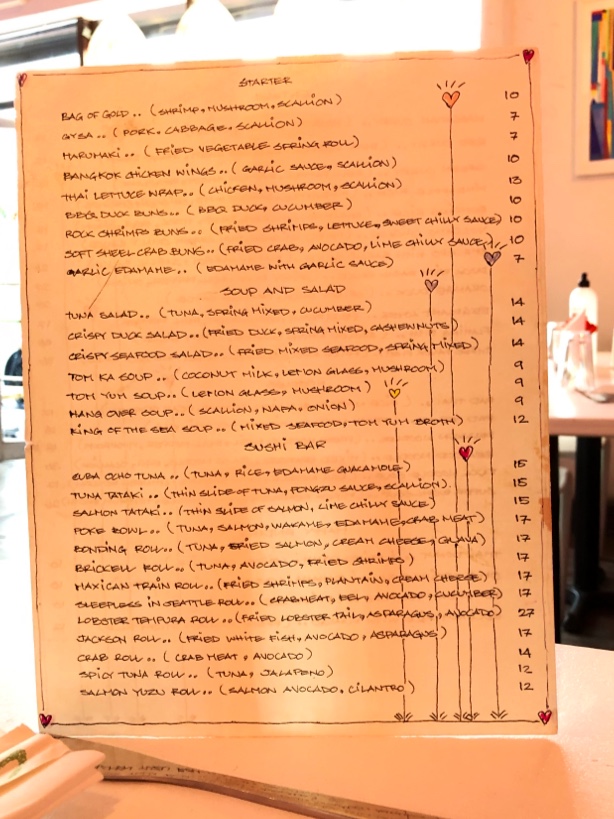 STARTER
BAG OF GOLD.. (SHRIMP, MUSHROOM, SCALLION) 10
GYSA.. (PORK, CABBAGE, SCALLION) 7
HARUMAKI.. (FRIED VEGETABLE SPRING ROLL) 7
BANGKOK CHICKEN WINGS.. (GARLIC SAUCE, SCALLION) 10
THAI LETTUCE WRAP.. (CHICKEN, MUSHROOM, SCALLION) 13
BBQ DUCK BUNS.. (BBQ DUCK, CUCUMBER) 10
ROCK SHRIMPS BUNS.. (FRIED SHRIMPS, LETTUCE, SWEET CHILLY SAUCE) 10
SOFT SHEEL CRAB BUNS.. (FRIED CRAB, AVOCADO, LIME CHILLY SAUCE) 10
GARLIC EDAMAME.. (EDAMAME WITH GARLIC SAUCE) 7
SOUP AND SALAD
TUNA SALAD.. (TUNA, SPRING MIXED, CUCUMBER) 14
CRISPY DUCK SALAD.. (FRIED DUCK, SPRING MIXED, CASHEWNUTS) 14
CRISPY SEAFOOD SALAD.. (FRIED MIXED SEAFOOD, SPRING MIXED) 14
TOM KA SOUP.. (COCONUT MILK, LEMON GLASS, MUSHROOM) 9
TOM YUM SOUP.. (LEMON GLASS, MUSHROOM) 9
HANG OVER SOUP.. (SCALLION, NAPA, ONION) 9
KING OF THE SEA SOUP.. (MIXED SEAFOOD, TOM YUM BROTH) 12
SUSHI BAR
CUBA OCHO TUNA.. (TUNA, RICE, EDAMAME GUACAMOLE) 15
TUNA TATAKI.. (THIN SLIDE OF TUNA, PONGZU SAUCE, SCALLION) 15
SALMON TATAKI.. (THIN SLIDE OF SALMON, LIME CHILLY SAUCE) 15
POKE BOWL.. (TUNA, SALMON, WAKAME, EDAMAME, CRAB MEAT) 17
BONDING ROLL.. (TUNA, FRIED SALMON, CREAM CHEESE, GUAVA) 17
BRICKELL ROLL.. (TUNA, AVOCADO, FRIED SHRIMP) 17
MAXICAN TRAIN ROLL.. (FRIED SHRIMPS, PLANTAIN, CREAM CHEESE) 17
SLEEPLESS IN SEATTLE ROLL.. (CRABMEAT, EEL, AVOCADO, CUCUMBER) 17
LOBSTER TEMPURA ROLL.. (FRIED LOBSTER TAIL, ASPARAGUS, AVOCADO) 27
JACKSON ROLL.. (FRIED WHITE FISH, AVOCADO, ASPARAGUS) 17
CRAB ROLL.. (CRAB MEAT, AVOCADO) 14
SPICY TUNA ROLL.. (TUNA, JALAPENO) 12
SALMON YUZU ROLL.. (SALMON AVOCADO, CILANTRO) 12